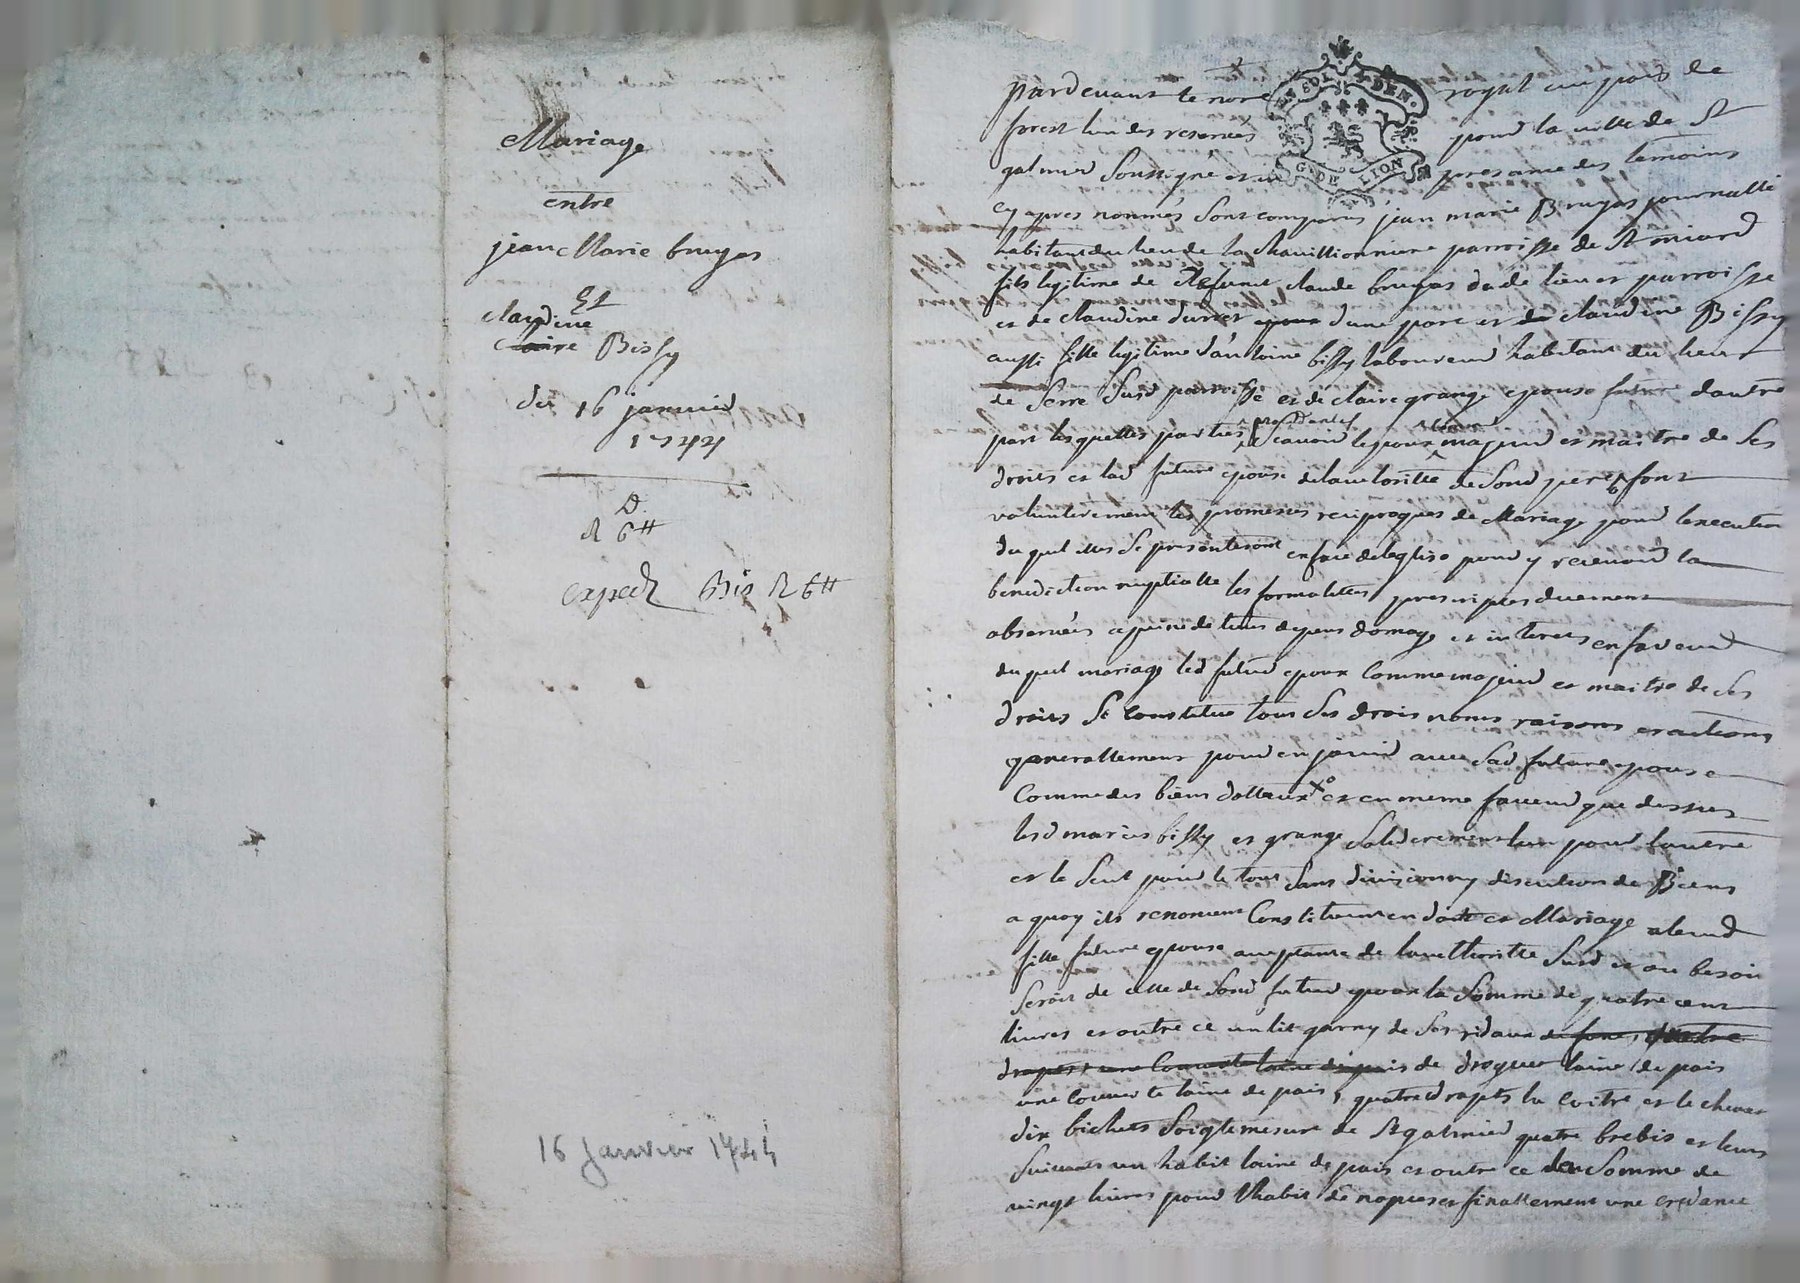 Mariage
entre
jean Marie bruyas
Et
claudine
claire Bissy
du 16 janvier
1744
R 6tt
exped Bis R 6tt
16 Janvier 1744
SOL DEN
G. DE LION
pardevant le nore royal au pais de
forest lun des reservés pour la ville de St
galmier soussigné et en presance des temoins
cy apres nommés sont comparus jean marie Bruyas journallié
habitant du lieu de la chauillionniere parroisse de St miard
fils legitime de defunt claude bruyas dud lieu et parroisse
et de claudine durret dune part et claudine Bissy
aussi fille legitime dantoine bissy laboureur habitant du lieu
de Serre susd parroisse et de claire grange epouse future dautre
part lesquelles parties procedantes scavoir lepoux majeur et maitre de ses
droits et lad future epouse de lautoritté de sond pere font
voluntairement les promesses reciproques de Mariage pour lexecution
du quel elles se presenteront en face de leglise pour y recevoir la
benediction nuptialle les formalittés prescriptes duement
observées a peine de tous depens domage et interets en faveur
du quel mariage led futur epoux comme majeur et maitre de ses
droits se constitue tous ses drois noms raisons et actions
generallement pour en jouir avec sad future epouse
comme des biens dotteaux et en meme faveur que dessus
lesd mariés bissy et grange soliderement lun pour lautre
et le seul pour le tout sans division ny discution de Biens
a quoy ils renoncent constituent en dotte et Mariage a leurd
fille future epouse acceptante de lauthoritte susd et au besoin
seroit de celle de sond futur epoux la somme de quatre cent
livres et outre ce un lit garny de ses ridaux de quatre
draps une couverte laine de pais de droguet laine de pais
une couverte laine de pais, quatre draps la coitre et le chevet
dix bichets soigle mesure de St galmier quatre brebis et leurs
suivants un habit laine de pais et outre ce la somme de
vingt livres pour lhabit de nopces et finallement une credance